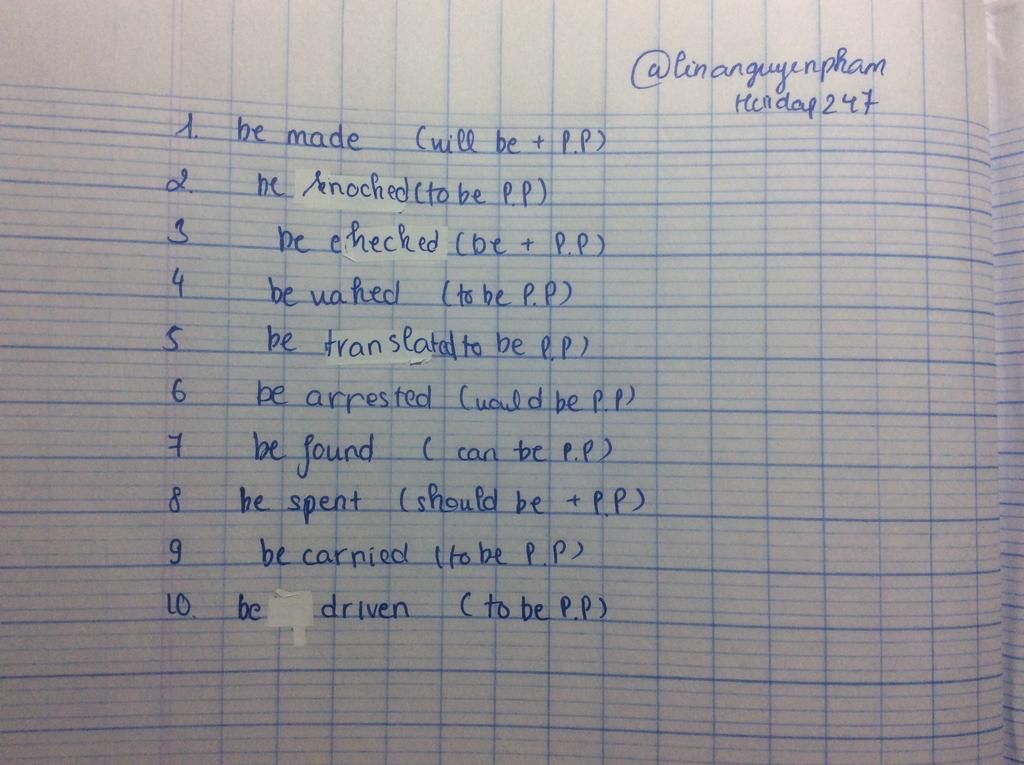 @linanguyenpham
Hoidap247
1. be made (will be + P.P)
2. be knocked (to be P.P)
3 be checked (be + P.P)
4 be waked (to be P.P)
5 be translated to be P.P)
6 be arrested (would be P.P)
7 be found ( can be P.P)
8 be spent (should be + P.P)
9 be carried (to be P.P)
10. be driven (to be P.P)